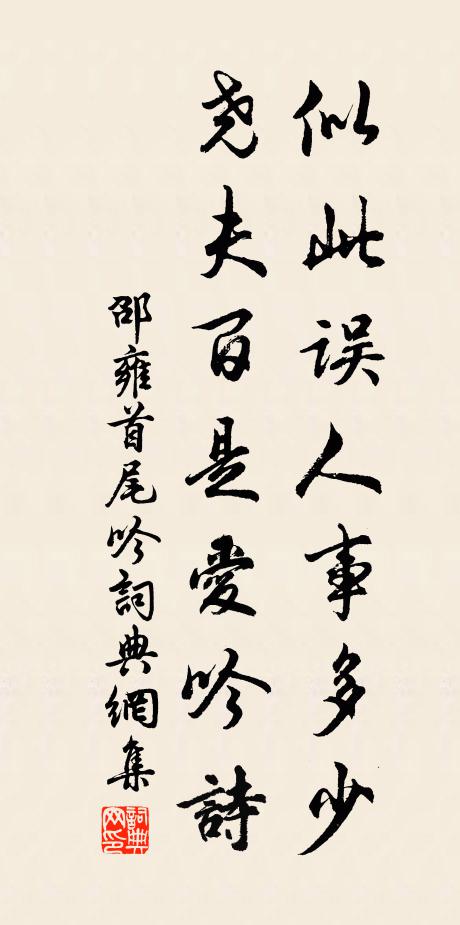 似此误人事多少
尧夫百是愛吟詩
邵雍首尾吟詞典網集
詞典
网印